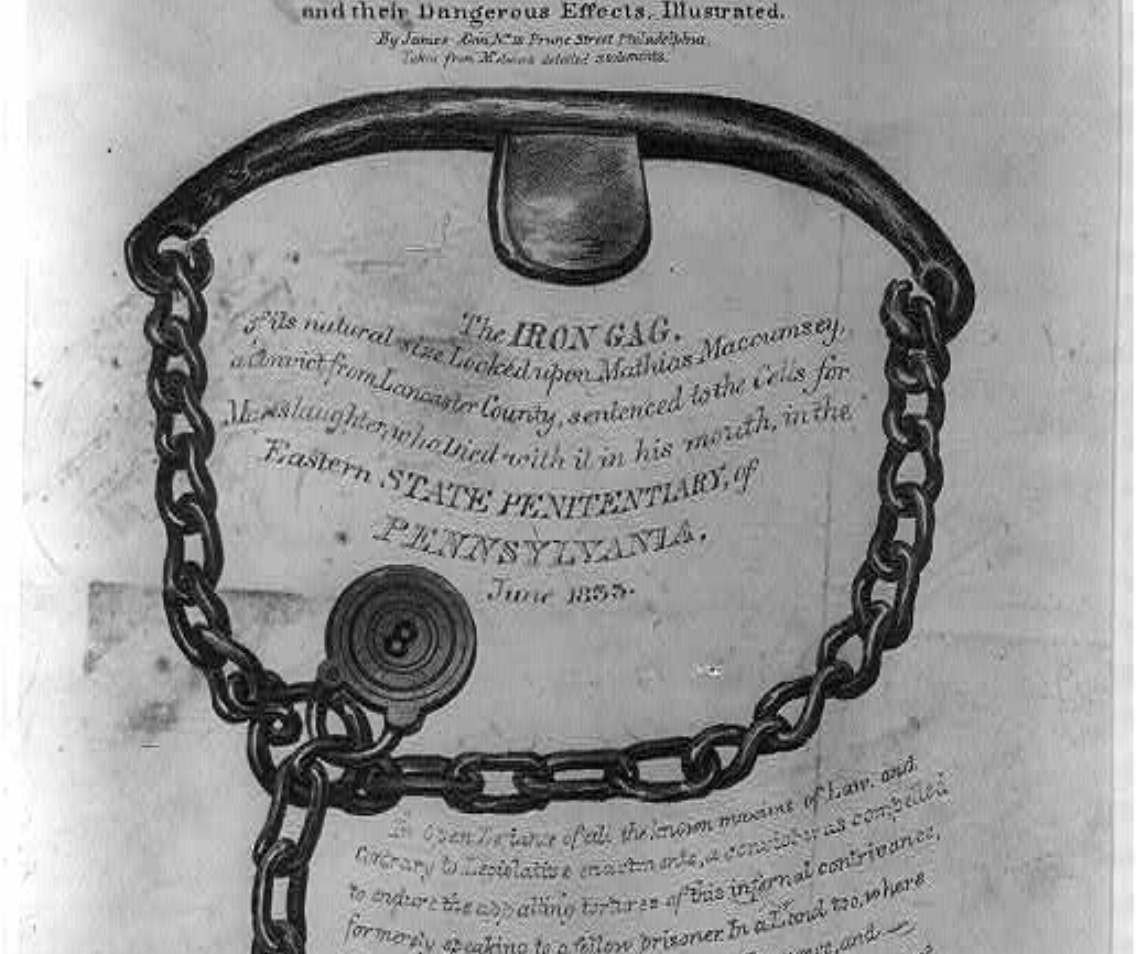 and their Dangerous Effects, Illustrated.
By James Street Philadelphia.
Taken from detailed statements.
The IRON GAG.
Of its natural size Locked upon Mathias Maccumsey,
a Convict from Lancaster County, sentenced to the Cells for
Manslaughter, who Died with it in his mouth, in the
Eastern STATE PENITENTIARY, of
PENNSYLVANIA.
June 1833.
In Open of all the known maxims of Law, and
Contrary to Legislative enactments, a convict was compelled
to endure the appalling tortures of this infernal contrivance,
for merely speaking to a fellow prisoner. In a Land too, where
and